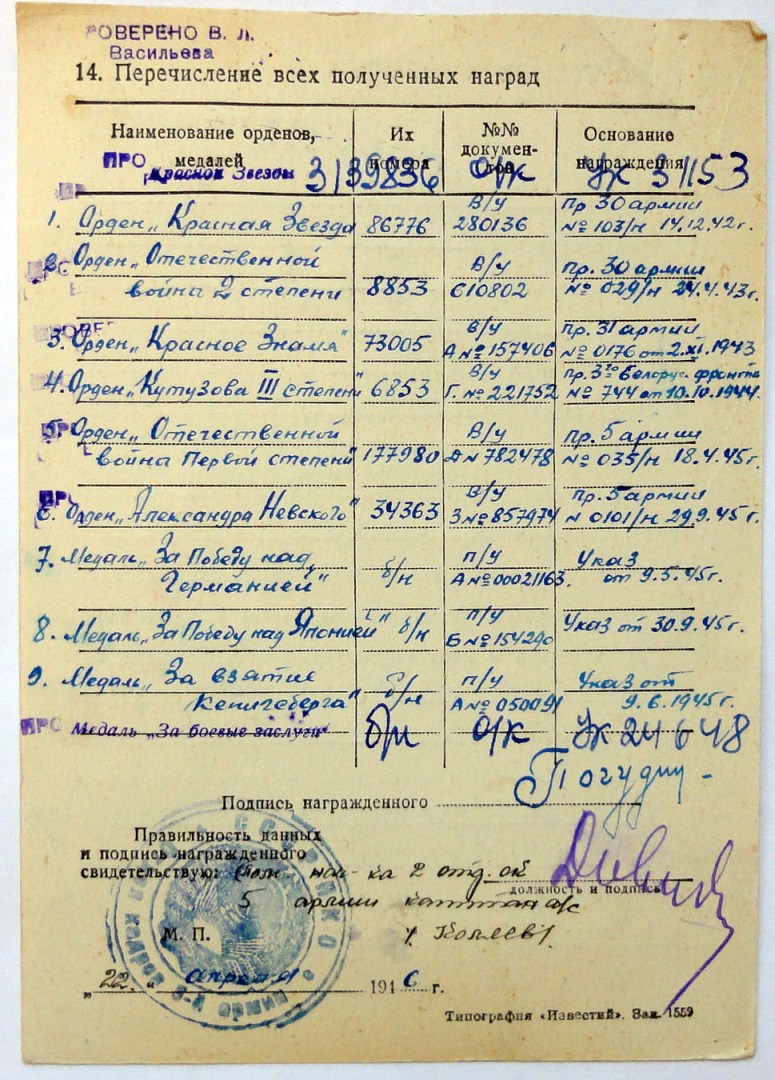 РОВЕРЕНО В. Л.
Васильева
14. Перечисление всех полученных наград
Наименование орденов, медалей
Их номера
№№ документов
Основание награждения
ПРО Красной Звезды 3139836 О/К Ук 31/153
1. Орден „Красная Звезда 86776 В/У 280136 Пр 30 армии № 103/н 14.12.42г.
2. Орден „Отечественной
война 2 степени 8853 В/У 610802 Пр. 30 армии № 029/н 24.4.43г.
3. Орден „Красное Знамя" 73005 В/У А №157406 Пр. 31 армии № 0176 от 2.XI.1943
4. Орден „Кутузова III степени" 6853 В/У Г. № 221752 Пр. 3го Белорус. фронта № 744 от 10.10.1944.
5. Орден „Отечественной
войны Первой степени" 177980 В/У Д№ 782478 Пр. 5 армии № 035/н 18.4.45г.
6. Орден „Александра Невского" 34363 В/У З №857974 Пр. 5 армии № 0101/н 29.9.45г.
7. Медаль „За Победу над
Германией" б/н П/У А №00021163. Указ от 9.5.45г.
8. Медаль „За Победу над Японией" б/н П/У Б №154290 Указ от 30.9.45г.
9. Медаль „За взятие
Кенигсберга" б/н П/У А№050091 Указ от 9.6.1945г.
ПРО Медаль „За боевые заслуги" б/н О/К Ук 24648
Подпись награжденного
Правильность данных
и подпись награжденного
свидетельствую: Пом. нач-ка 2 отд. ок
должность и подпись
5 армии капитан а/с
М. П.
„22" апреля 1946 г.
Типография «Известий». Зак. 1559